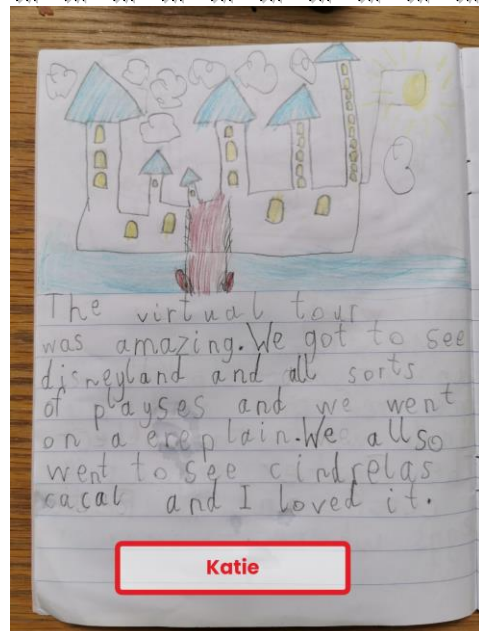 The virtual tour
was amazing. We got to see
disneyland and all sorts
of playses and we went
on a ereplain. We allso
went to see cindrelas
cacal and I loved it.
Katie